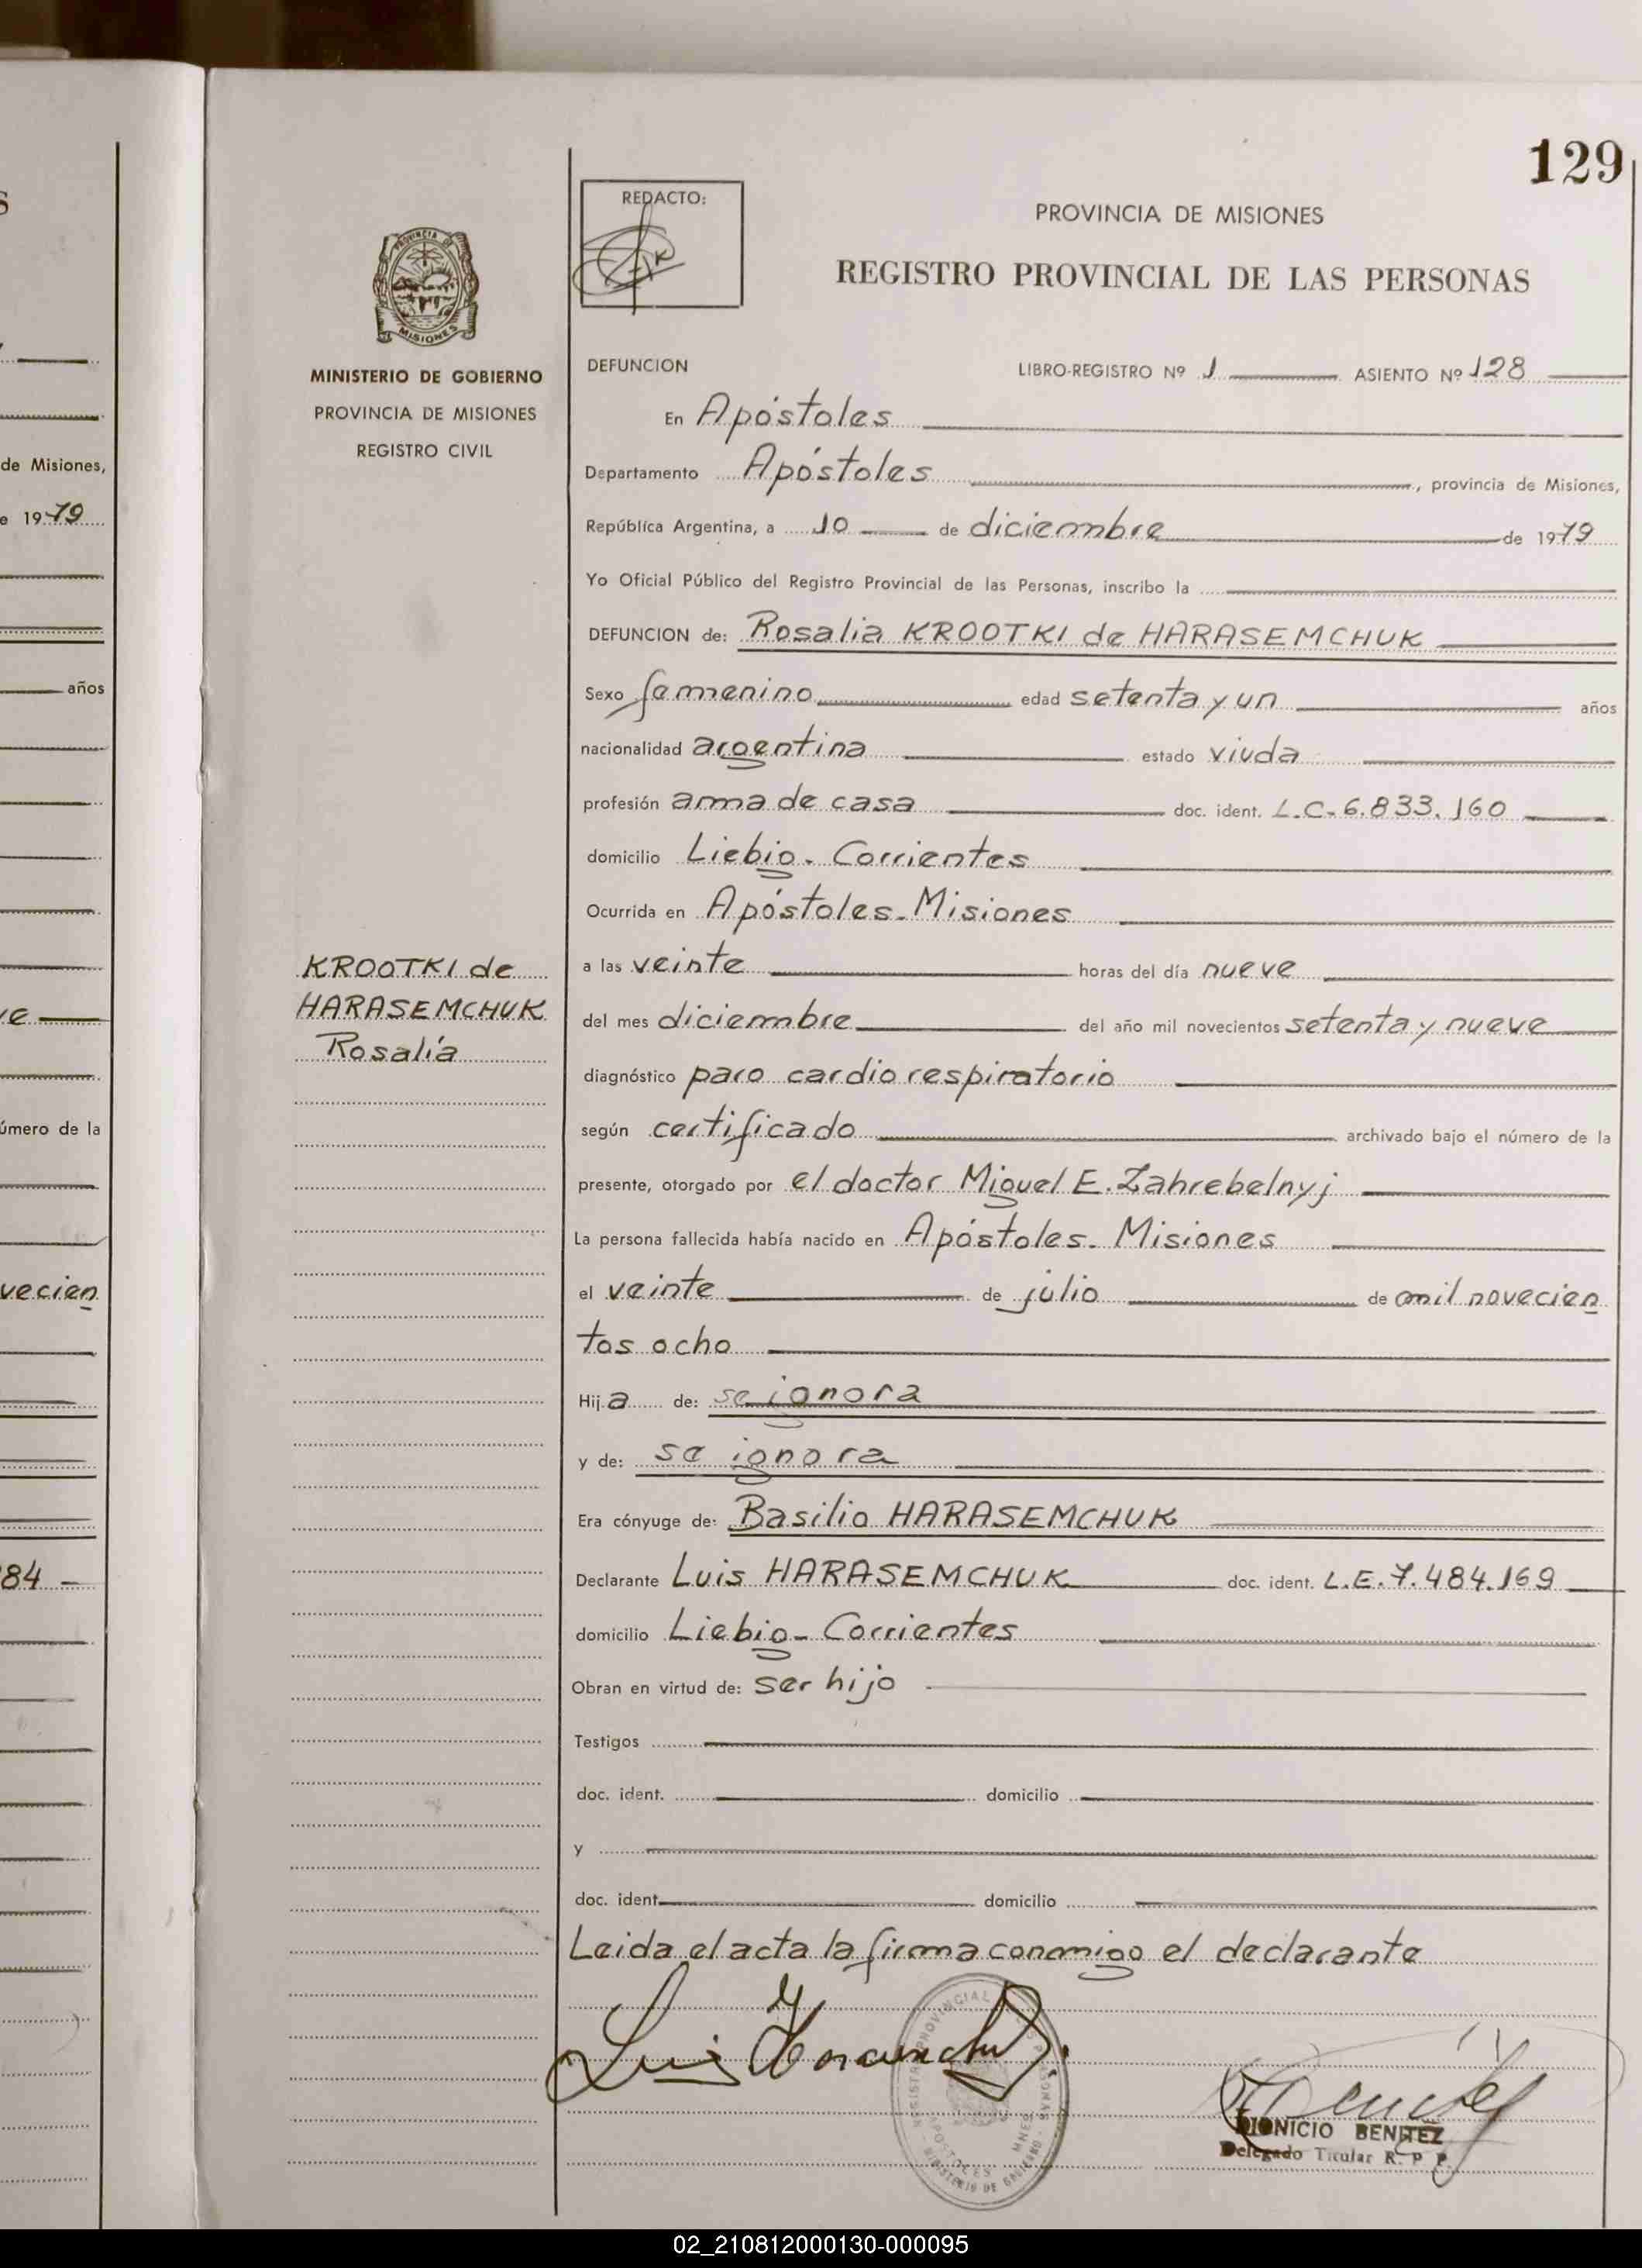 129
REDACTO:
PROVINCIA DE MISIONES
REGISTRO PROVINCIAL DE LAS PERSONAS
PROVINCIA DE
MISIONES
MINISTERIO DE GOBIERNO
PROVINCIA DE MISIONES
REGISTRO CIVIL
DEFUNCION LIBRO-REGISTRO Nº 1 ASIENTO Nº 128
En Apóstoles
Departamento Apóstoles, provincia de Misiones,
República Argentina, a 10 de diciembre de 1979
Yo Oficial Público del Registro Provincial de las Personas, inscribo la
DEFUNCION de: Rosalia KROOTKI de HARASEMCHUK
Sexo femenino edad setenta y un años
nacionalidad argentina estado viuda
profesión ama de casa doc. ident. L.C-6.833.160
domicilio Liebig. Corrientes
Ocurrida en Apóstoles-Misiones
KROOTKI de
HARASEMCHUK
Rosalía
a las veinte horas del día nueve
del mes diciembre del año mil novecientos setenta y nueve
diagnóstico paro cardio respiratorio
según certificado archivado bajo el número de la
presente, otorgado por el doctor Miguel E. Zahrebelnyj
La persona fallecida había nacido en Apóstoles. Misiones
el veinte de julio de mil novecien
tos ocho
Hija de: se ignora
y de: se ignora
Era cónyuge de: Basilio HARASEMCHUK
Declarante Luis HARASEMCHUK doc. ident. L.E.7.484.169
domicilio Liebig-Corrientes
Obran en virtud de: ser hijo
Testigos
doc. ident. domicilio
y
doc. ident. domicilio
Leida el acta la firma conmigo el declarante
Luis
DIONICIO BENITEZ
Delegado Titular R. P P.
de Misiones,
e 1979
años
úmero de la
vecien
84
02_210812000130-000095